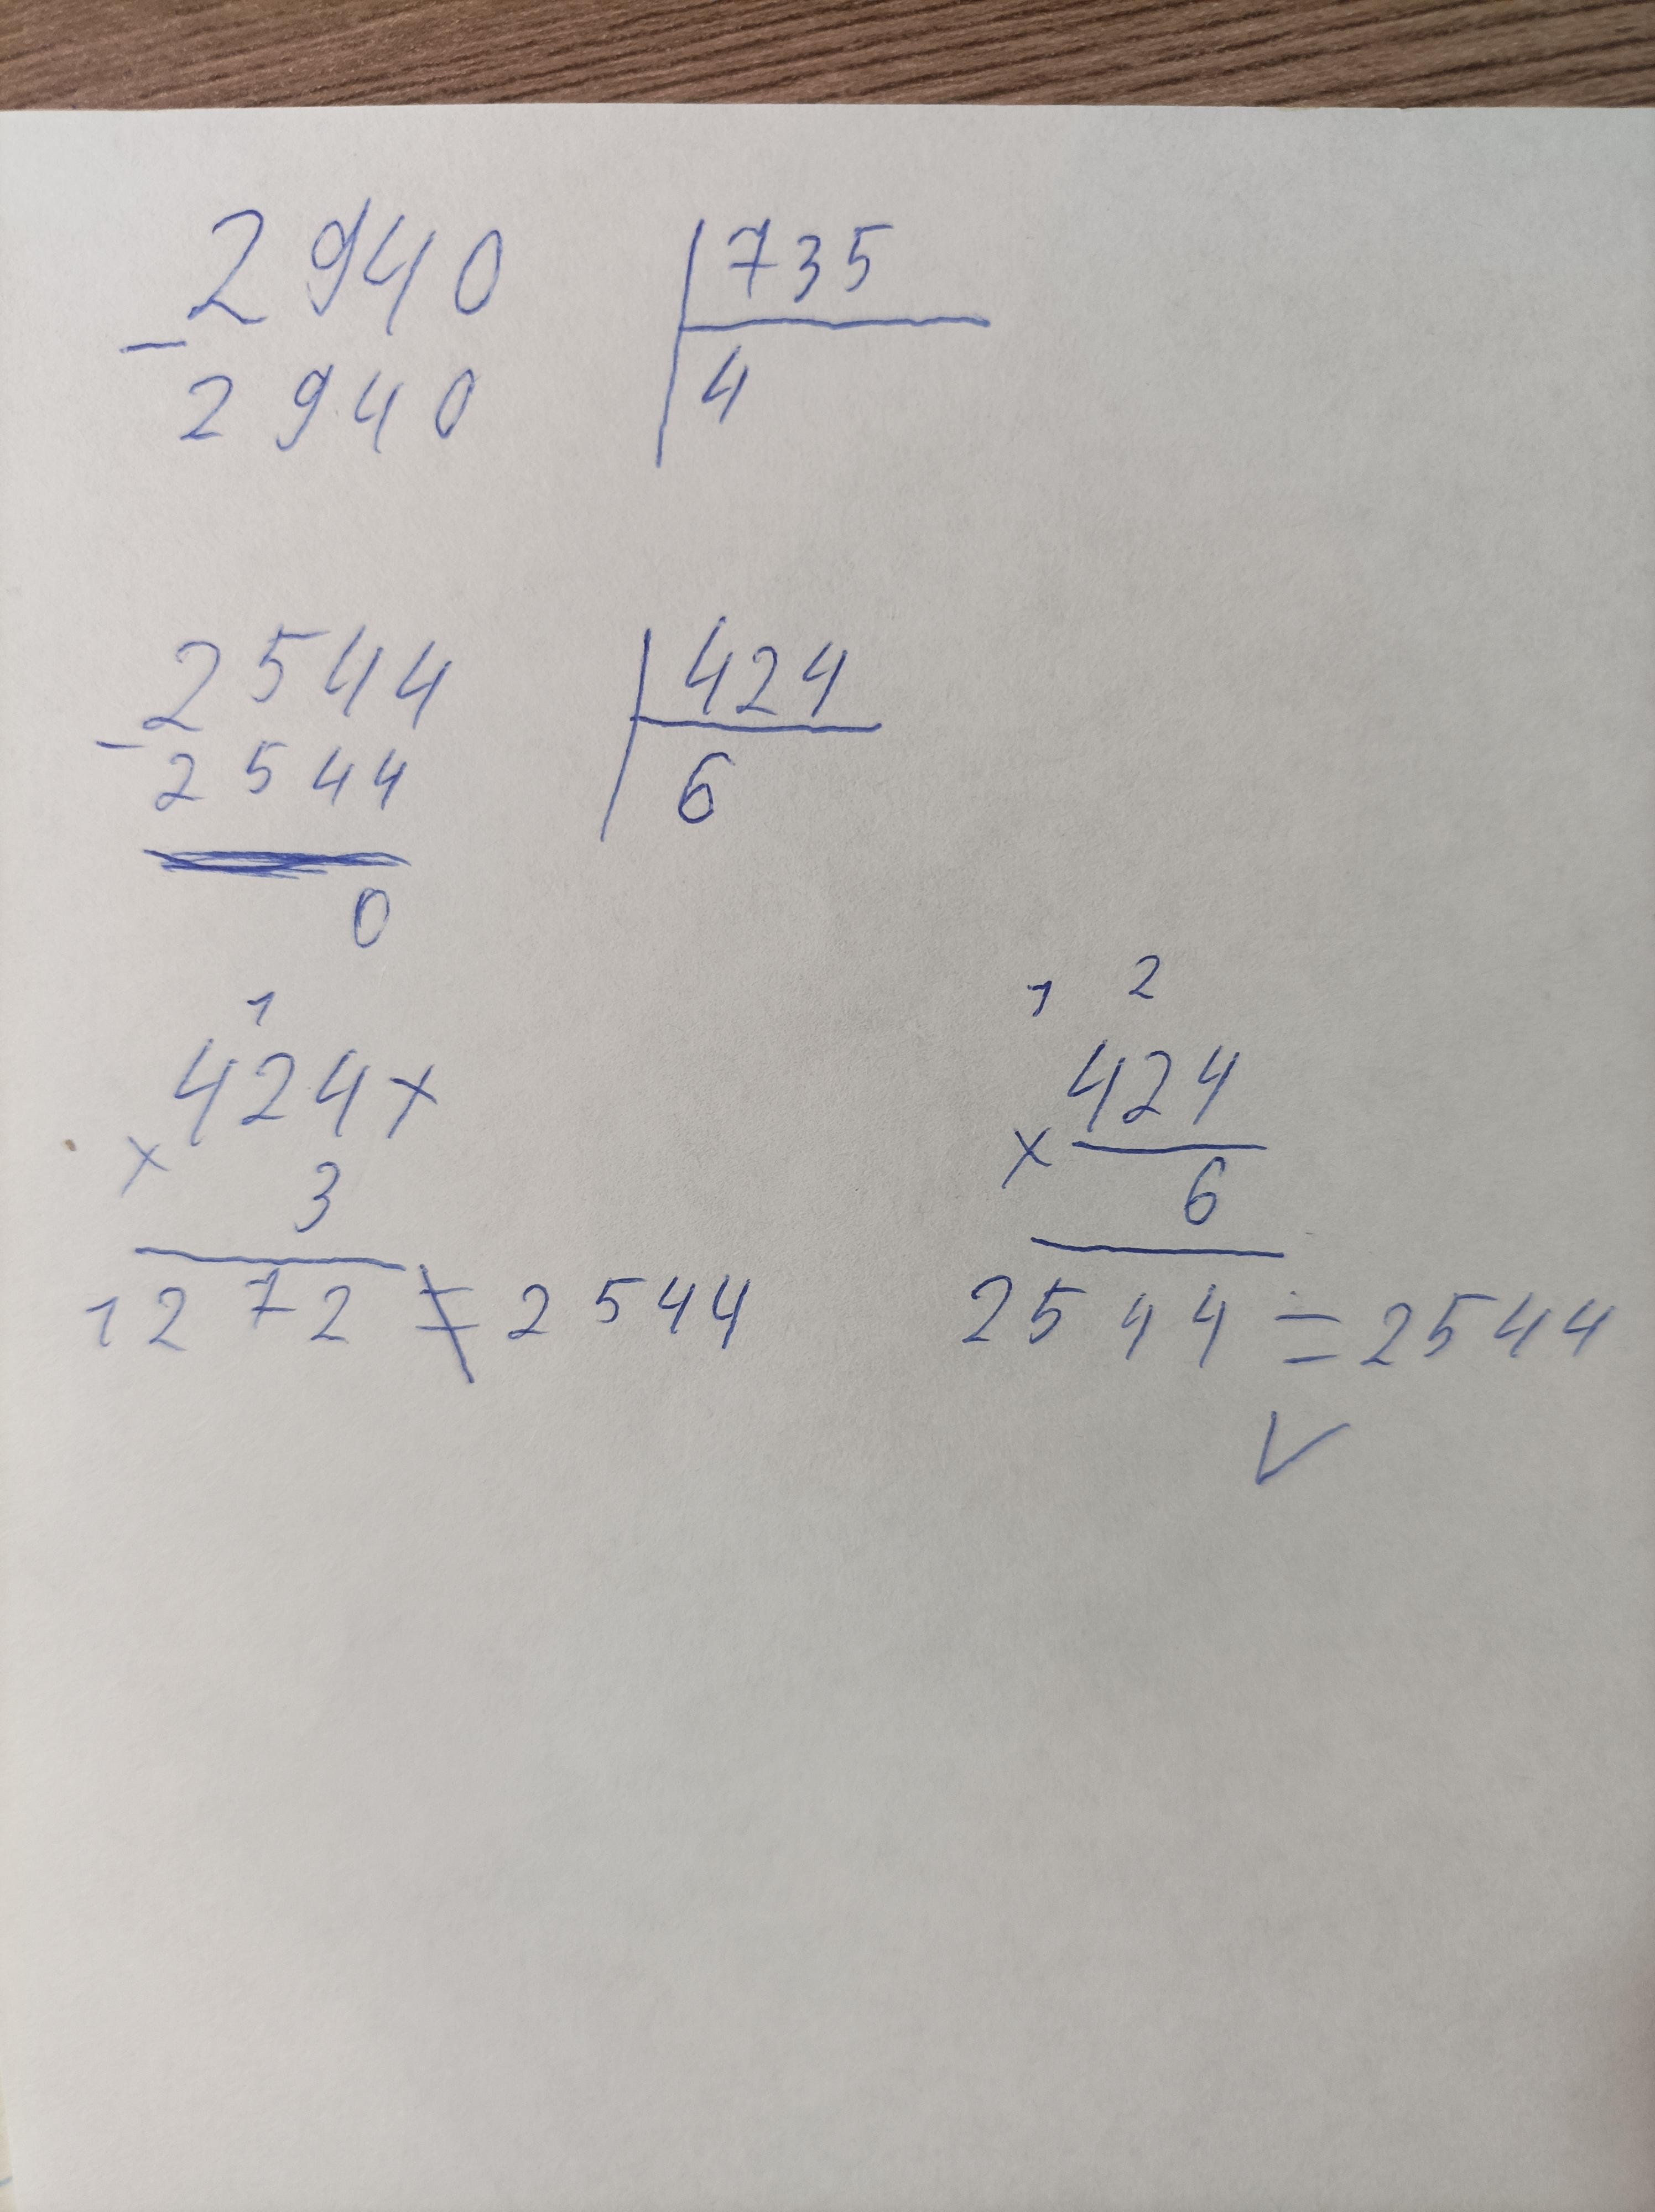 2940 | 735
- 2940 | 4
2544 | 424
- 2544 | 6
0
1
424 x
x 3
1272 ≠ 2544
1 2
424
x 6
2544 = 2544
✓